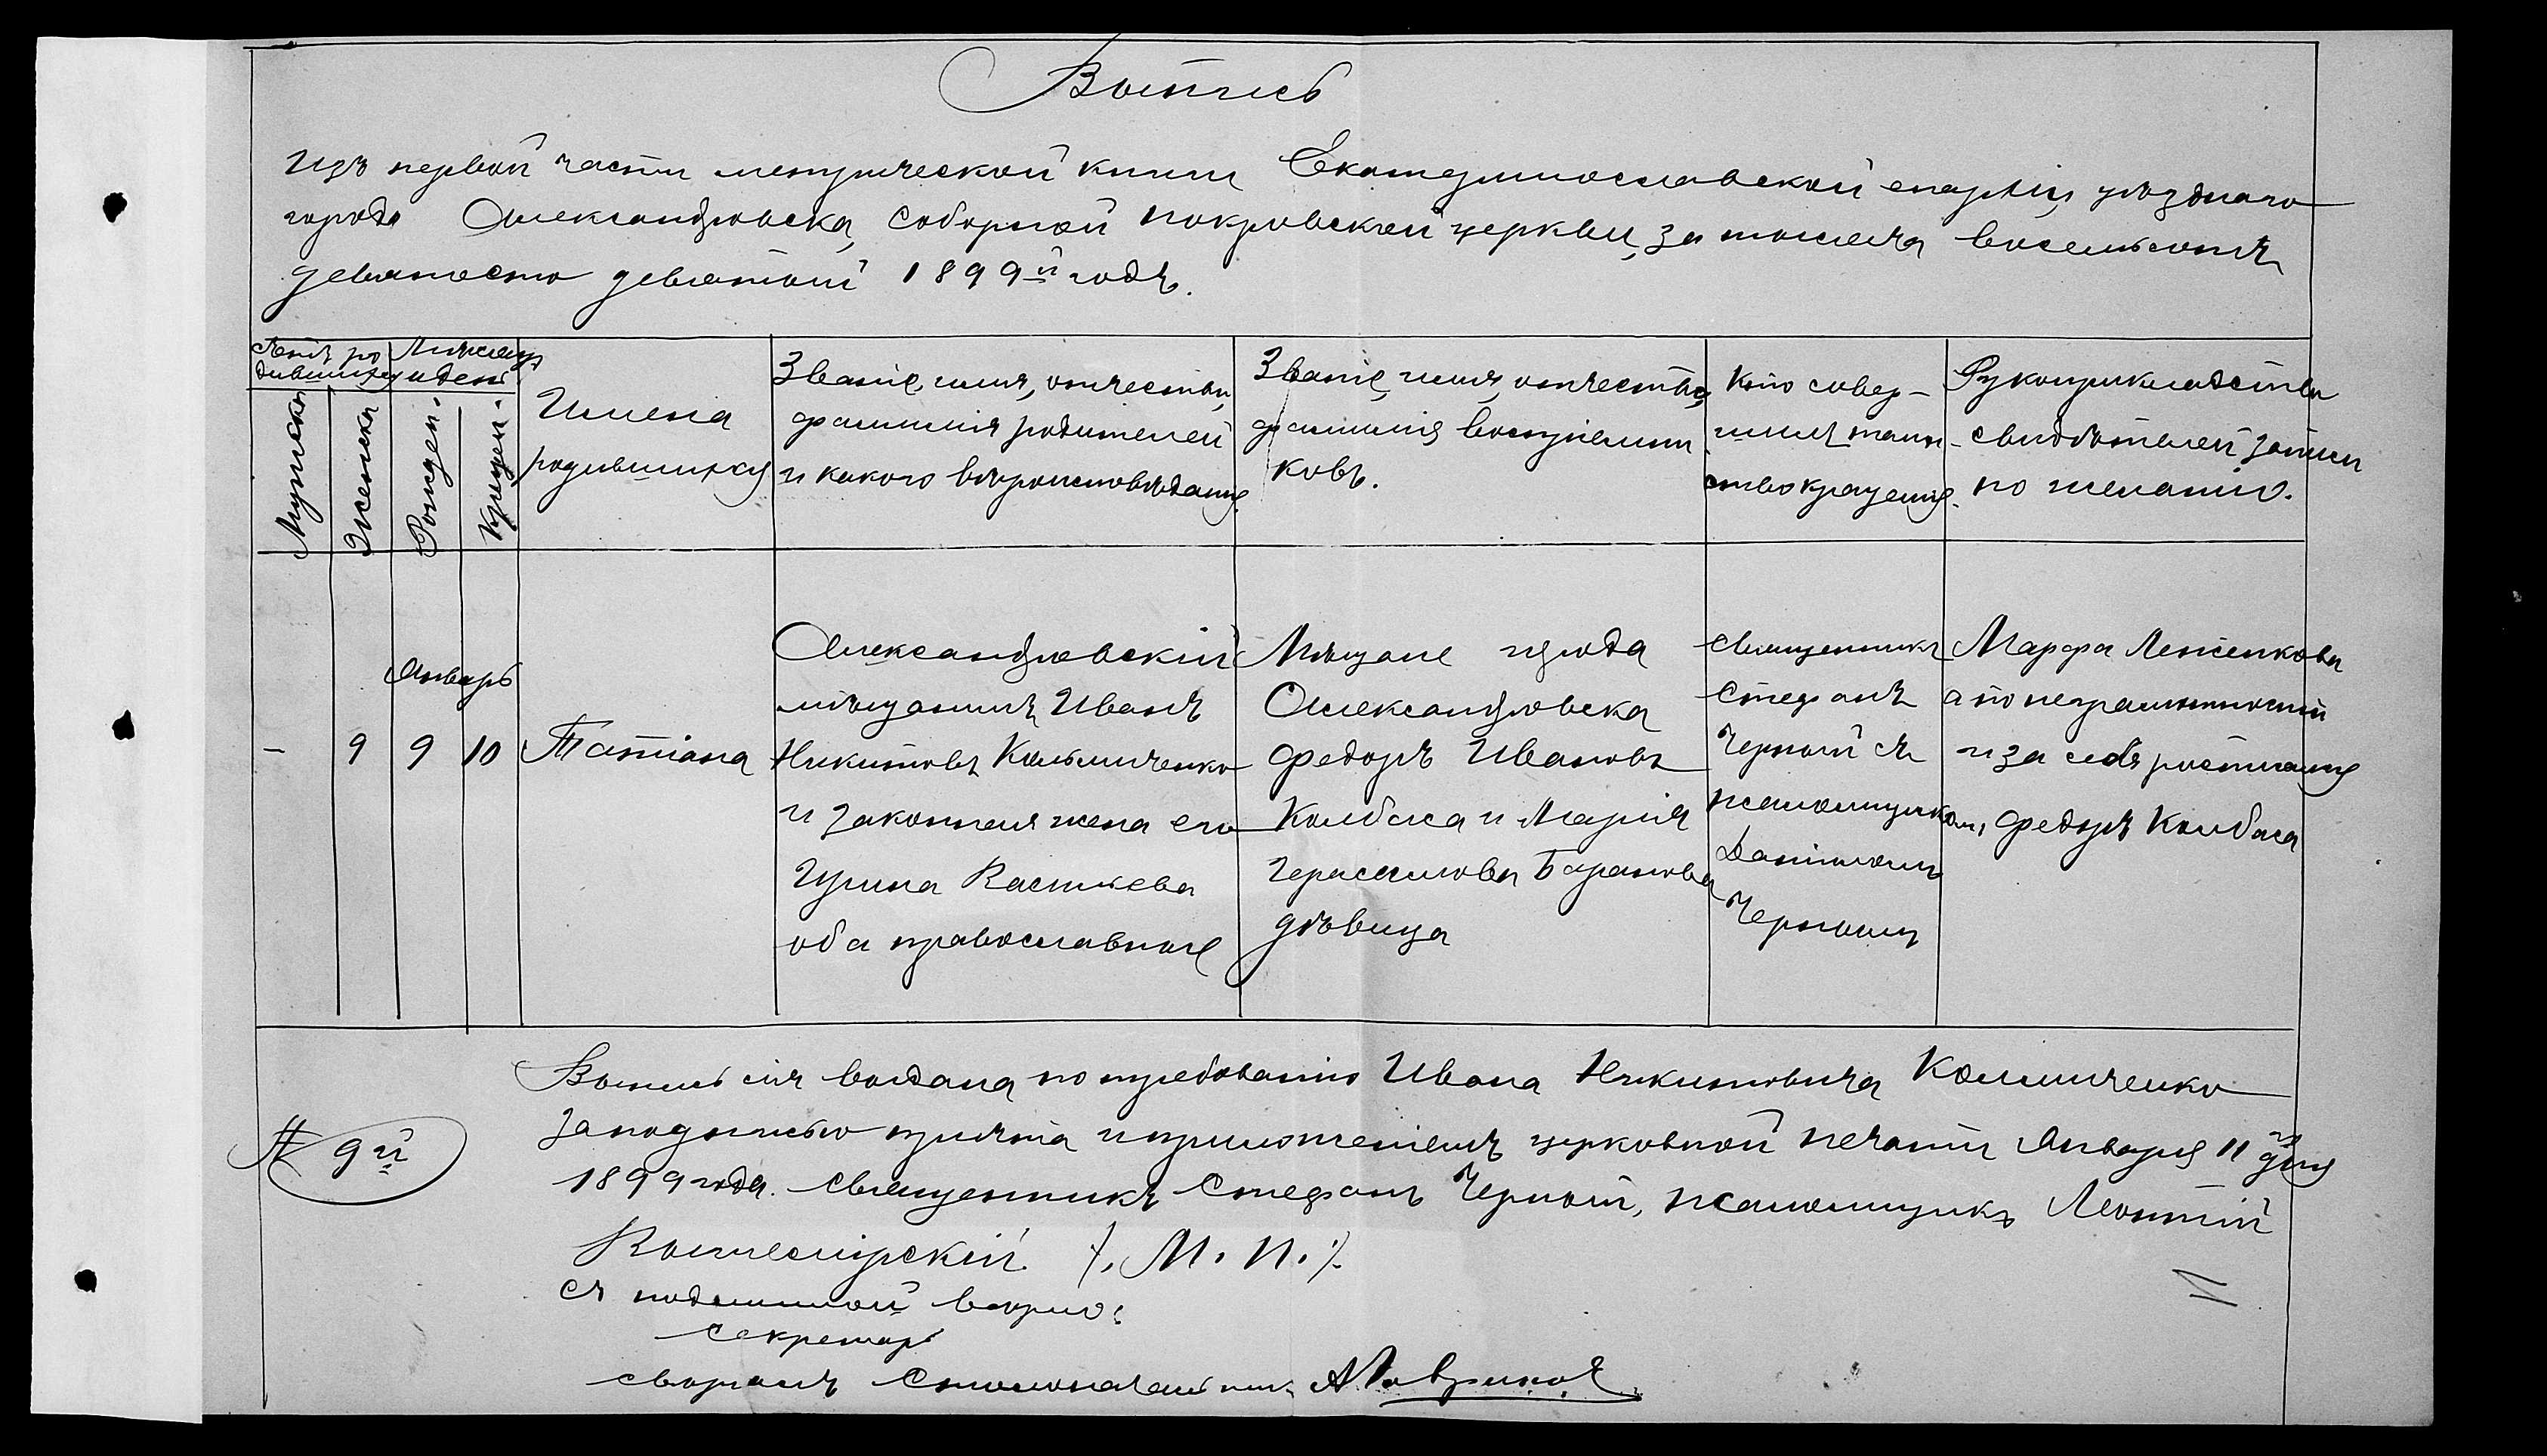 Выпись
изъ первой части метрической книги Екатеринославской епархіи, уѣзднаго
города Александровска, соборной Покровской церкви, за тысяча восемьсотъ
девяносто девятый 1899й годъ.
Счетъ ро
дившихся
Мѣсяцъ
и день
Мужеска
Женска
Рожден.
Крещен.
Имена
родившихся
Званіе, имя, отчество,
фамилія родителей
и какого вѣроисповѣданія.
Званіе, имя, отчество,
фамилія воспріемни
ковъ.
Кто совер-
шилъ таин-
ство крещенія.
Рукоприкладство
свидѣтелей записи
по желанію.
Январь
– 9 9 10
Татіана
Александровскій
мѣщанинъ Иванъ
Никитовъ Кальниченко
и законная жена его
Ирина Касьнѣева
оба православные
Мѣщане города
Александровска
Федоръ Ивановъ
Колбаса и Марія
Герасимова Баранова
дѣвица
Священникъ
Стефанъ
Черный съ
псаломщикомъ
Черным
Марфа Леженкова
а по неграмотности
и за себя росписался
Федоръ Колбаса
Выпись сія выдана по требованію Ивана Никитовича Калниченко
за подписью причта и приложеніемъ церковной печати Января 11 го дня
1899 года. Священникъ Стефанъ Черный, псаломщикъ Леонтій
/. М. П. ./
№ 9й
Съ подлинной вѣрно:
Секретарь
Столоначальникъ